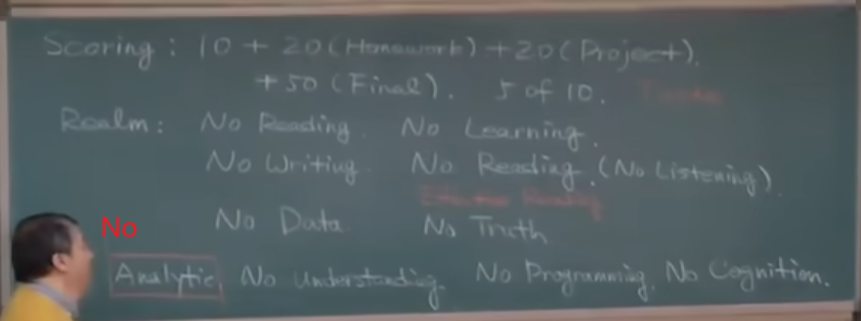 Scoring : 10 + 20 (Homework) + 20 (Project).
+ 50 (Final). 5 of 10.
Realm : No Reading. No Learning.
No Writing. No Reading. (No Listening)
Effective Reading
No Data. No Truth
No
Analytic. No Understanding. No Programming. No Cognition.